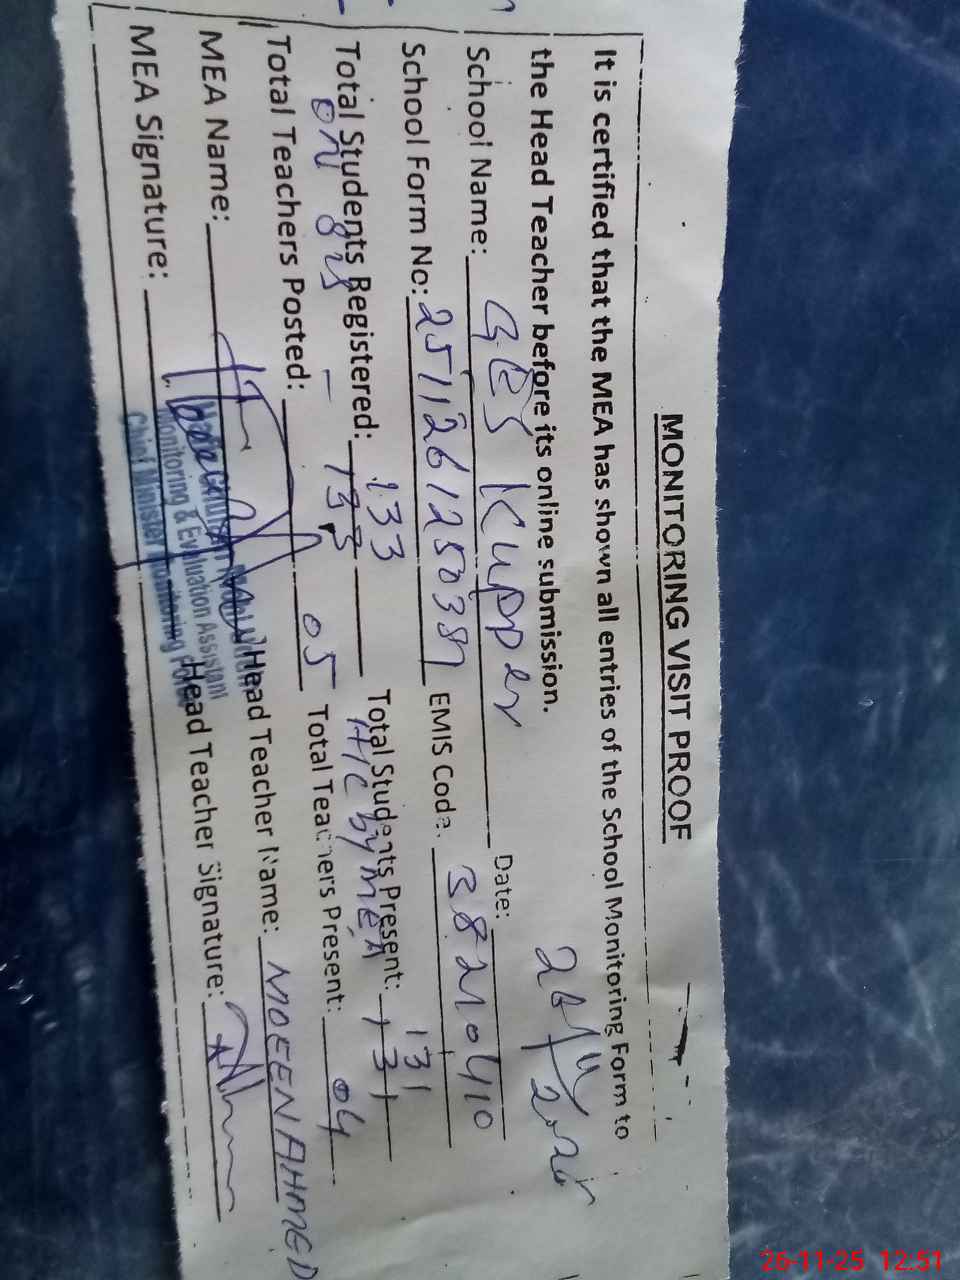 MONITORING VISIT PROOF
It is certified that the MEA has shown all entries of the School Monitoring Form to
the Head Teacher before its online submission.
School Name: GES Kupper Date: 26/11/2025
School Form No: EMIS Code. 38210410
Total Students Registered: 133 Total Students Present: 131
ON SIS - 133 H/C By MEA 131
Total Teachers Posted: 05 Total Teachers Present: 04
MEA Name: Head Teacher Name: MOEEN AHMED
MEA Signature: Head Teacher Signature:
Monitoring & Evaluation Assistant
Chief Minister Monitoring Force
26-11-25 12:51